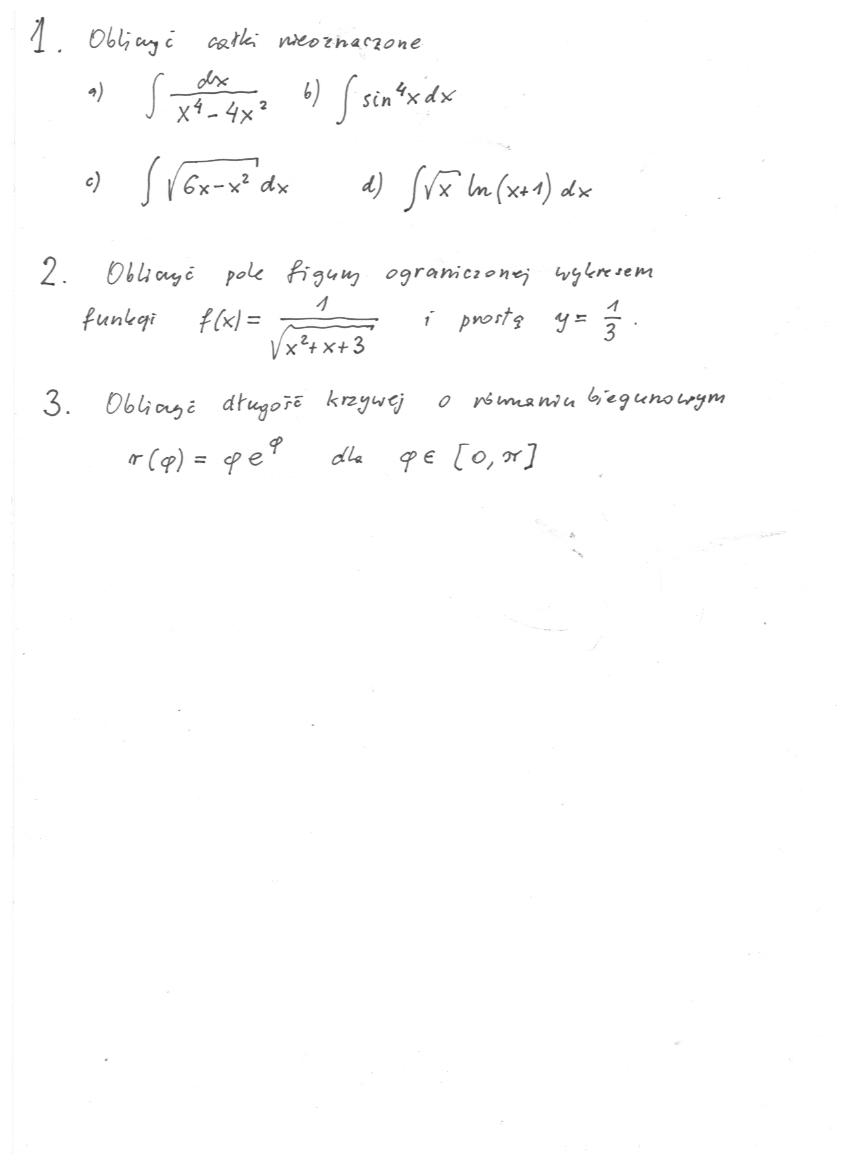 1. Obliczyć całki nieoznaczone
a) ∫ dx/(x⁴ - 4x²) b) ∫ sin⁴x dx
c) ∫ √(6x-x²) dx d) ∫ √x ln(x+1) dx
2. Obliczyć pole figury ograniczonej wykresem
funkcji f(x) = 1/√(x²+x+3) i prostą y = 1/3.
3. Obliczyć długość krzywej o równaniu biegunowym
r(φ) = φe^φ dla φ ∈ [0, π]